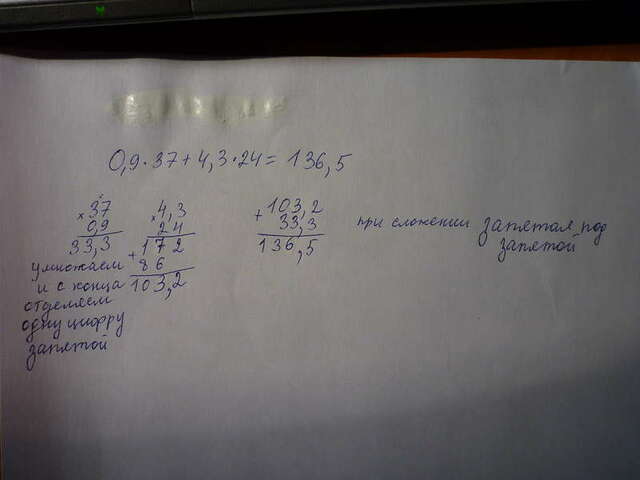 0,9·37+4,3·24= 136,5
×37
0,9
33,3
умножаем
и с конца
отделяем
одну цифру
запятой
×4,3
24
+172
86
103,2
+103,2
33,3
136,5
при сложении запятая под
запятой